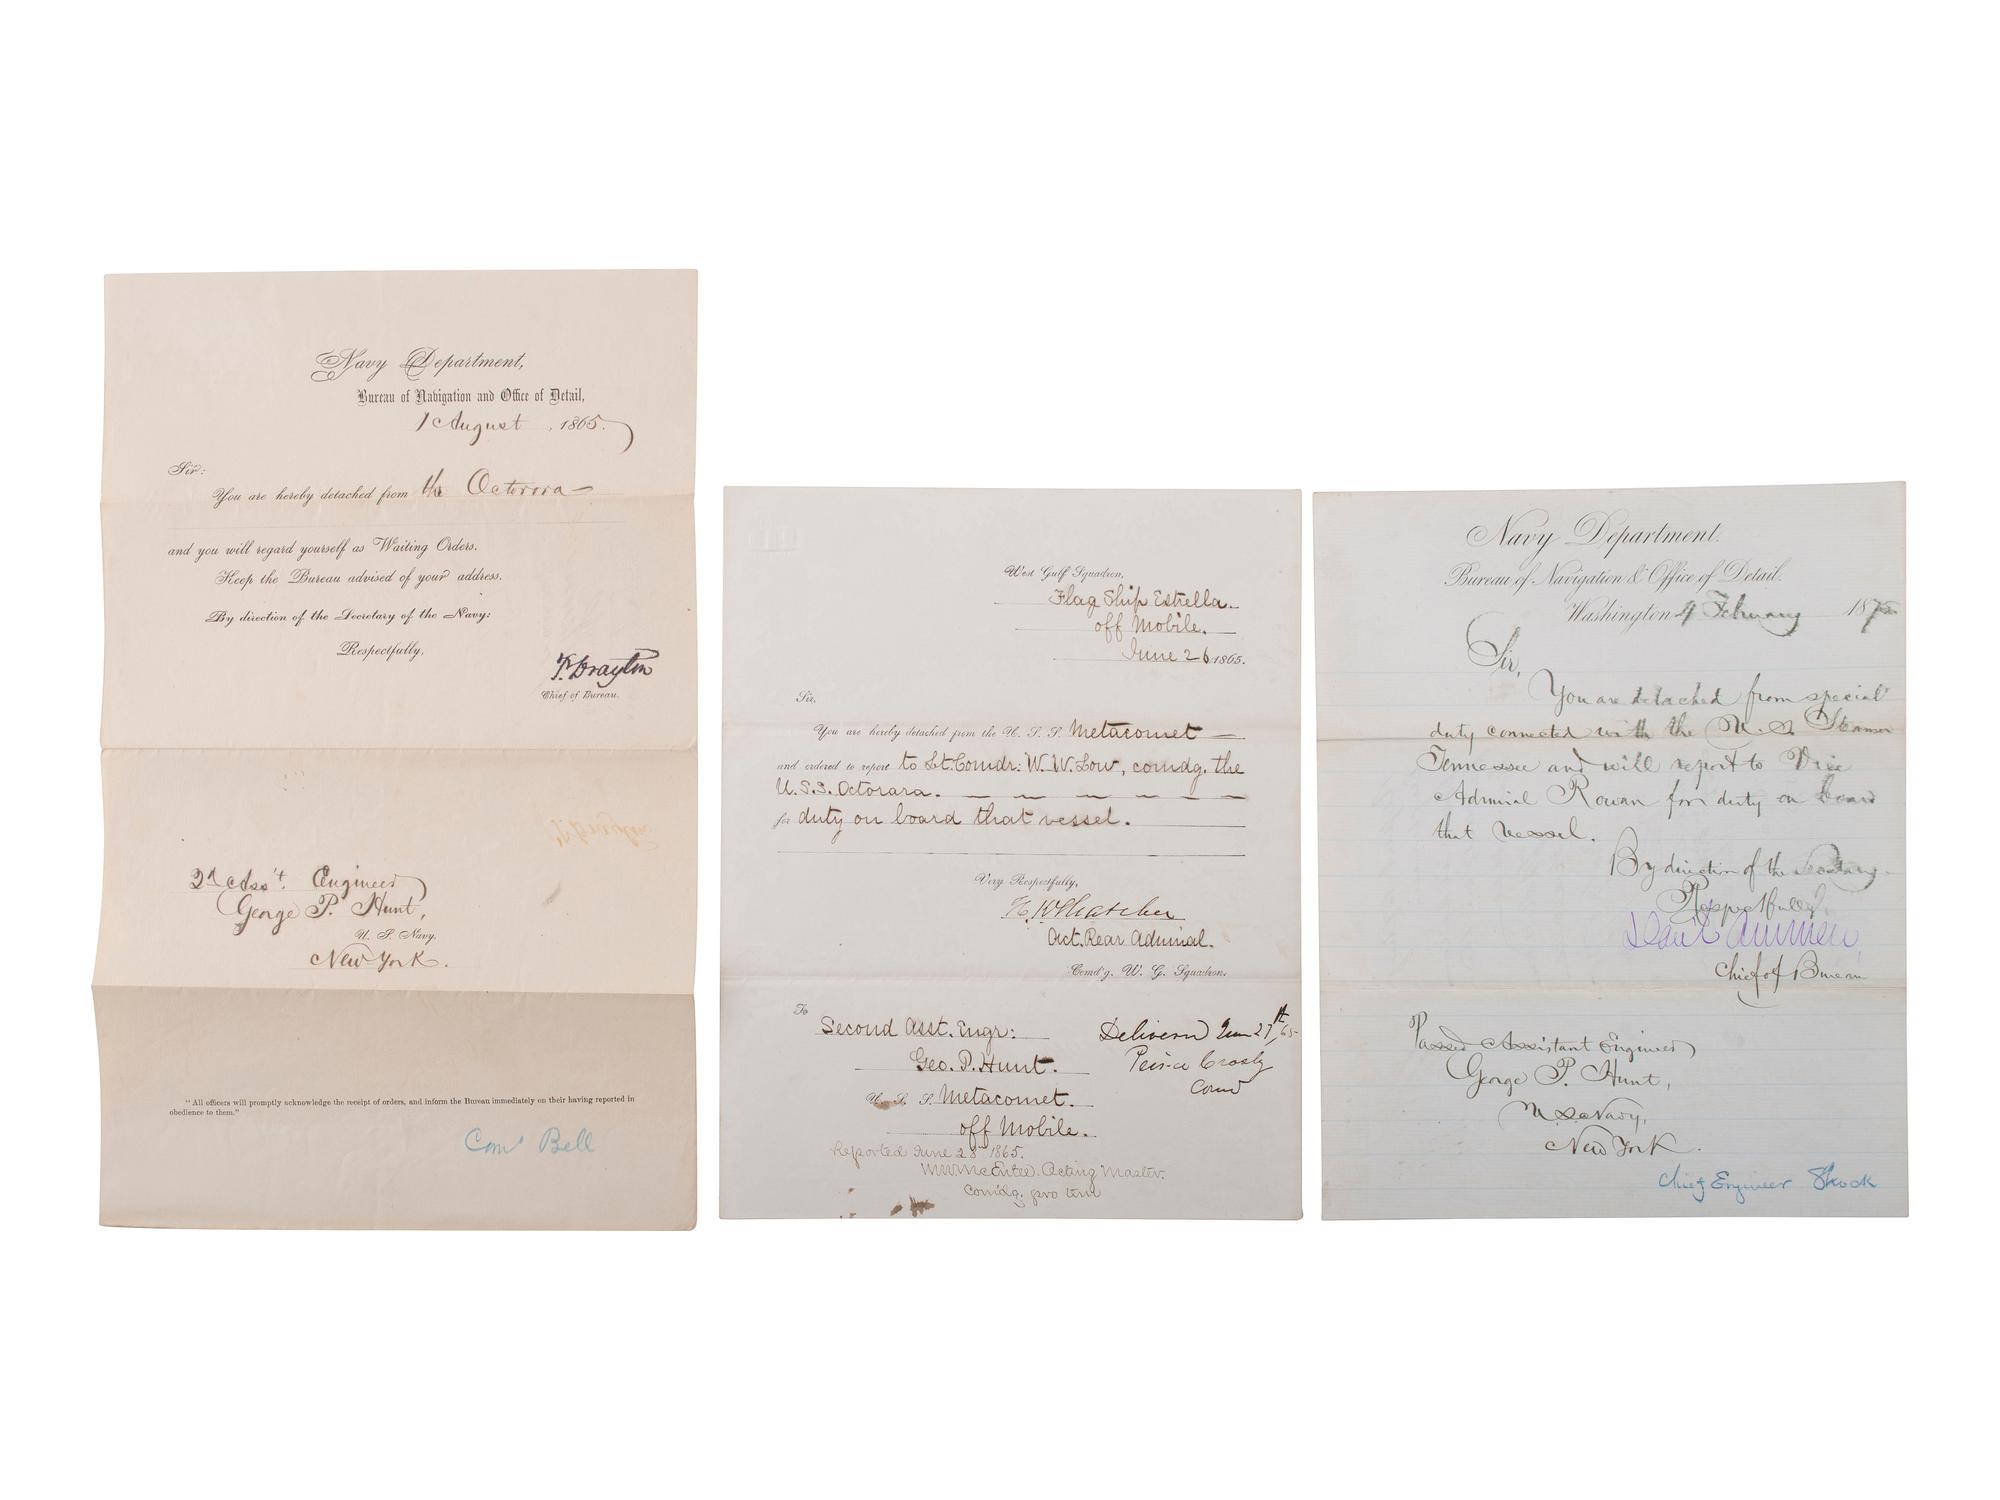 Navy Department,
Bureau of Navigation and Office of Detail,
1 August, 1865.
Sir:
You are hereby detached from the Octorora
and you will regard yourself as Waiting Orders.
Keep the Bureau advised of your address.
By direction of the Secretary of the Navy:
Respectfully,
P. Drayton
Chief of Bureau.
2d Ass't. Engineer
George P. Hunt,
U. S. Navy,
New York.
"All officers will promptly acknowledge the receipt of orders, and inform the Bureau immediately on their having reported in
obedience to them."
Com' Bell
West Gulf Squadron,
Flag Ship Estrella.
off Mobile.
June 26 1865.
Sir,
You are hereby detached from the U. S. S. Metacomet
and ordered to report to Lt. Comdr: W. W. Low, comdg. the
U.S.S. Octorara.
for duty on board that vessel.
Very Respectfully,
H. K. Thatcher
Act. Rear Admiral.
Comd'g. W. G. Squadron.
To
Second Asst. Engr:
Geo. P. Hunt.
U. S. S. Metacomet.
off Mobile.
Delivered June 27th, 65
Peirce Crosby
Comd
Reported June 28 1865.
McEntee. Acting Master.
Comdg. pro tem
Navy Department.
Bureau of Navigation & Office of Detail.
Washington 9 February 187
Sir,
You are detached from special
duty connected with the U. S. Steamer
Tennessee and will report to Vice
Admiral Rowan for duty on board
that vessel.
By direction of the Secretary
Respectfully,
Dan'l Ammen
Chief of Bureau
Passed Assistant Engineer
George P. Hunt,
U. S. Navy,
New York.
Chief Engineer Shock